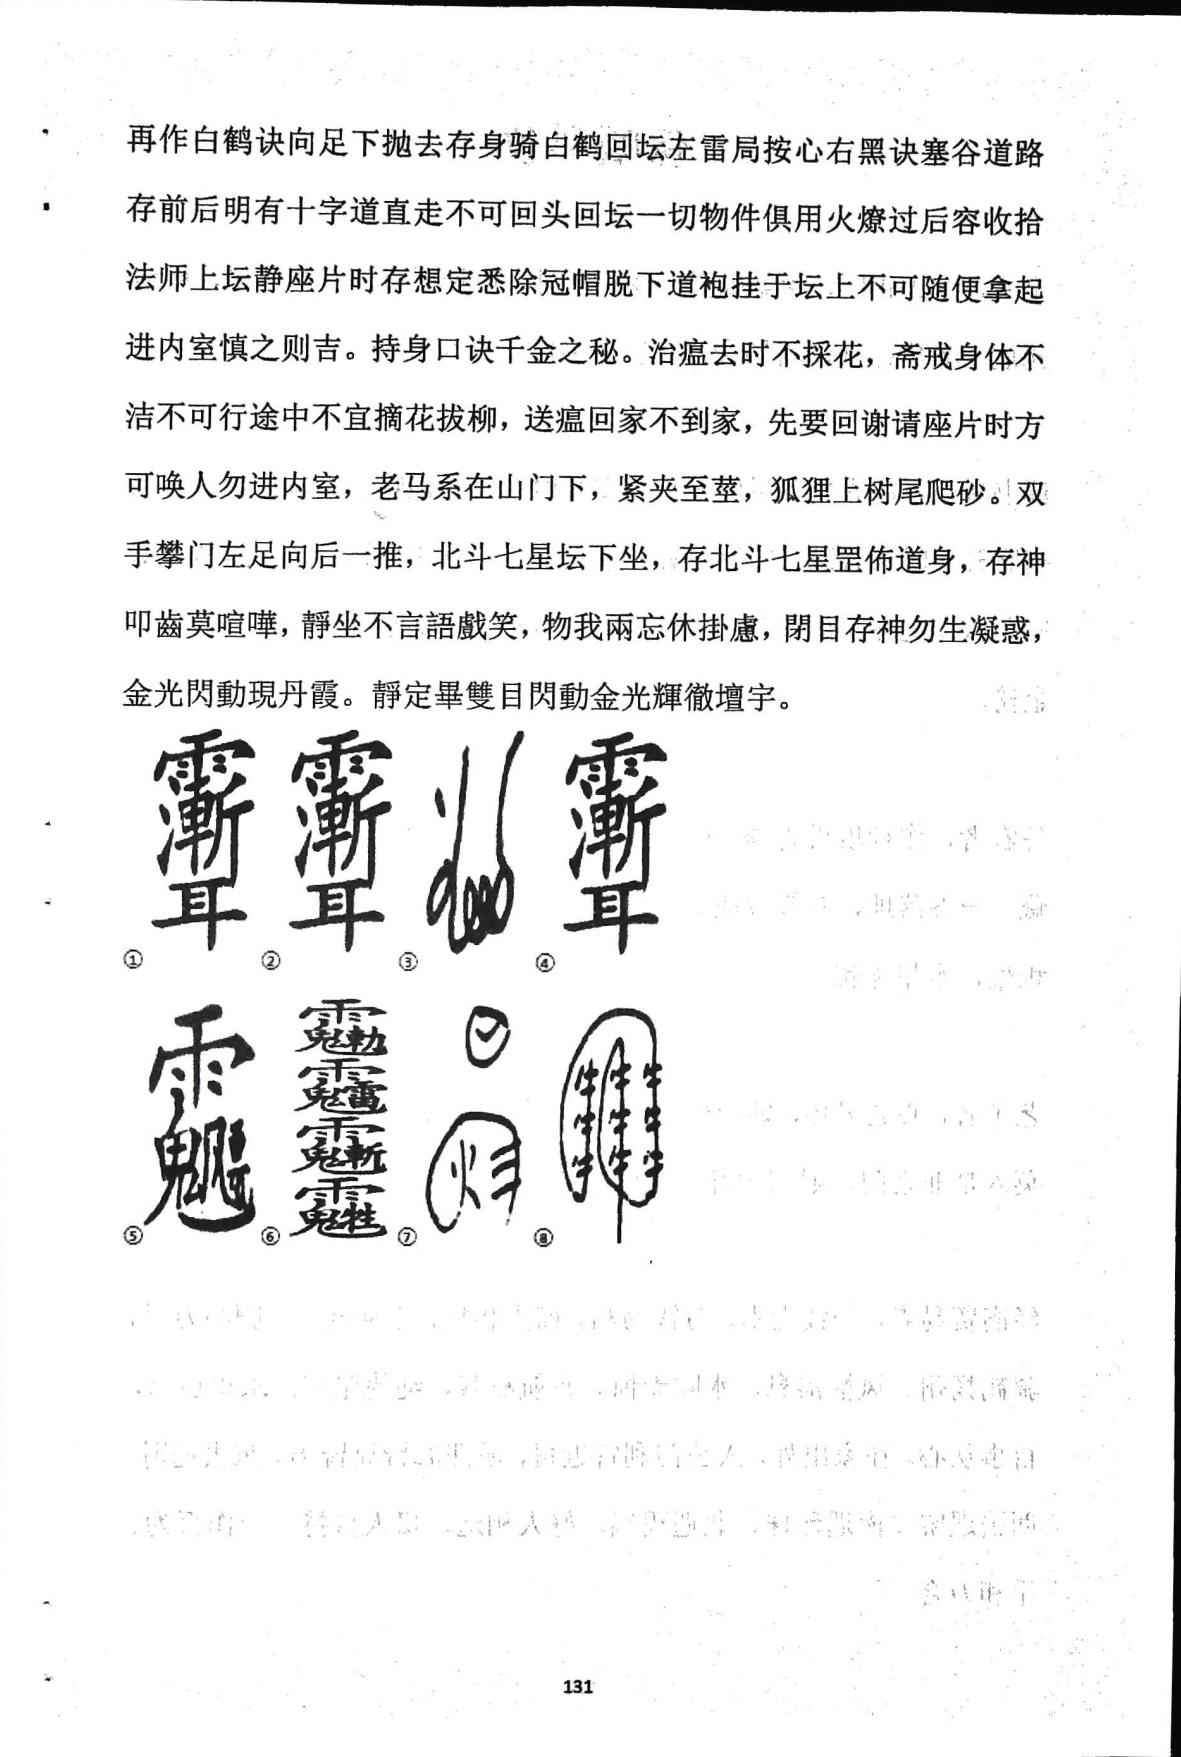 再作白鹤诀向足下抛去存身骑白鹤回坛左雷局按心右黑诀塞谷道路
存前后明有十字道直走不可回头回坛一切物件俱用火燎过后容收拾
法师上坛静座片时存想定悉除冠帽脱下道袍挂于坛上不可随便拿起
进内室慎之则吉。持身口诀千金之秘。治瘟去时不採花，斋戒身体不
洁不可行途中不宜摘花拔柳，送瘟回家不到家，先要回谢请座片时方
可唤人勿进内室，老马系在山门下，紧夹至茎，狐狸上树尾爬砂。双
手攀门左足向后一推，北斗七星坛下坐，存北斗七星罡佈道身，存神
叩齒莫喧嘩，靜坐不言語戲笑，物我兩忘休掛慮，閉目存神勿生凝惑，
金光閃動現丹霞。靜定畢雙目閃動金光輝徹壇宇。
① ② ③ ④
⑤ ⑥ ⑦ ⑧
131